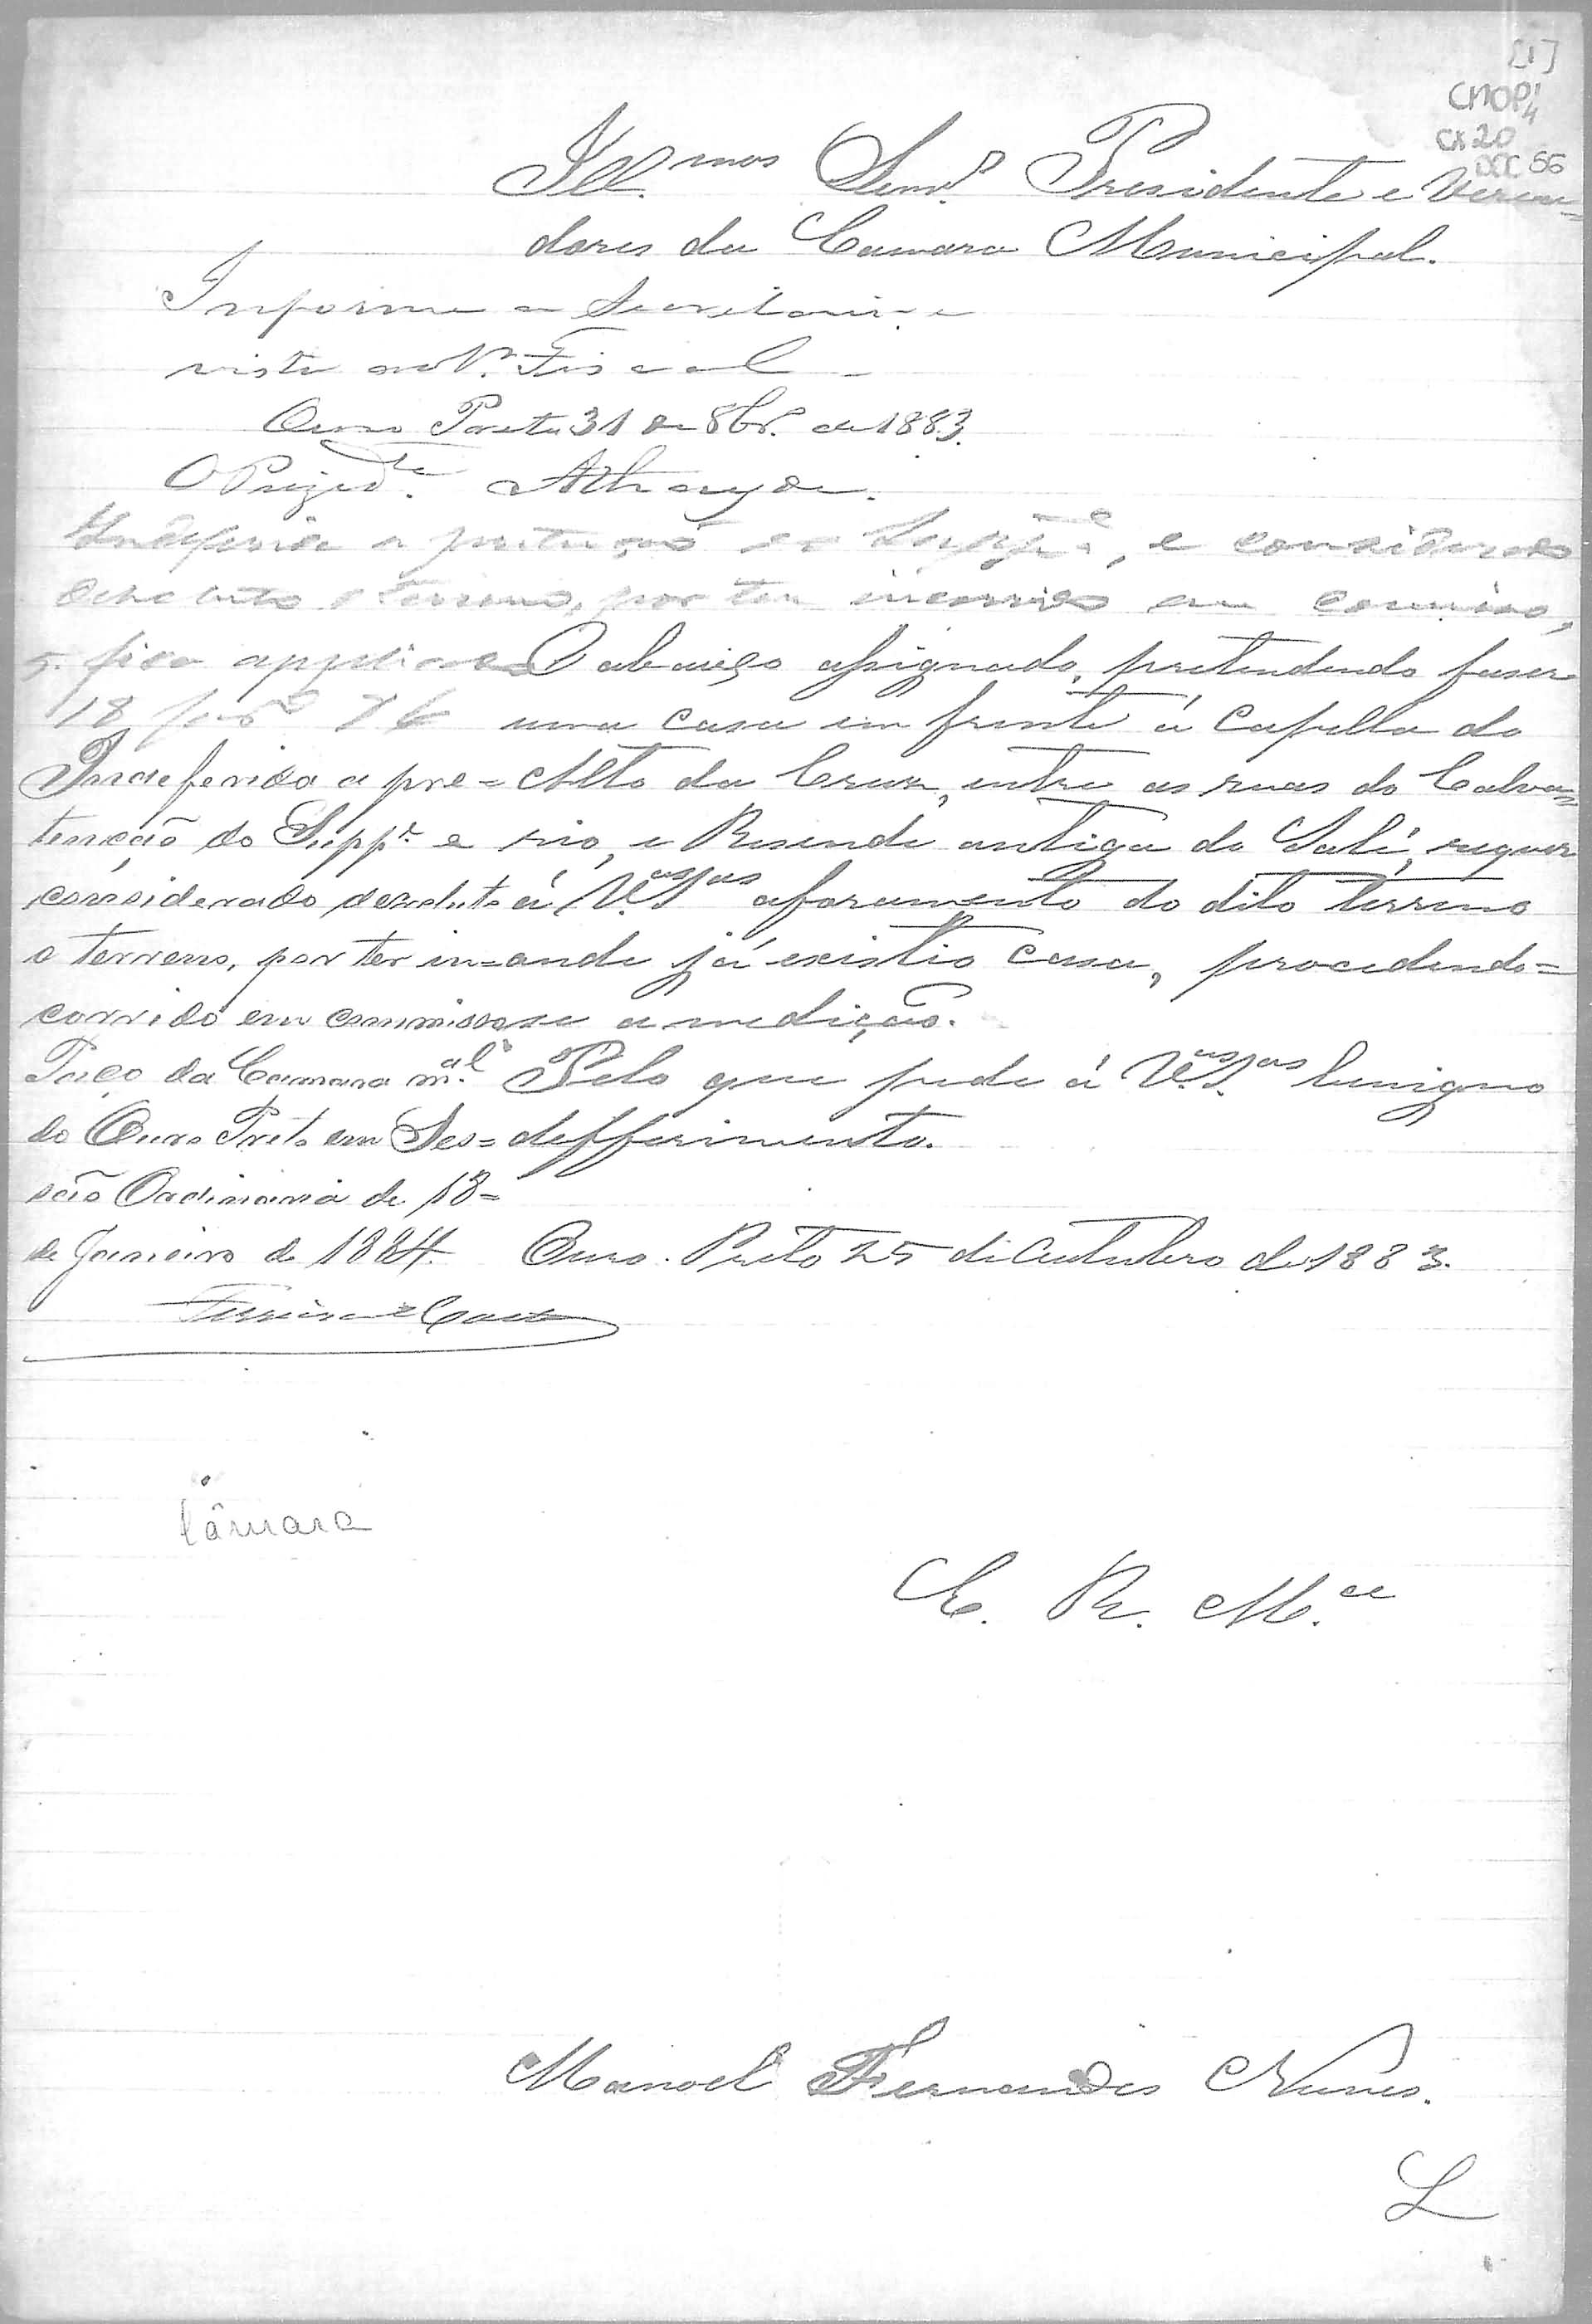 [1]
CMOP 4
CX 20
DOC 56
Ill.mos Senr.s Presidente e Verea=
dores da Camara Municipal.
Informe a Secretaria e
vista ao Pr. Fiscal
Ouro Preto 31 de 8br.o de 1883.
O Prezid.te Athayde.
Indeferida a pretenção do Supp.e, e considerado
devoluto o terreno, por ter incorrido em commisso,
fica
18 86
O abaixo assignado, pretendendo faser
uma casa em frente á Capella do
Alto da Cruz, entre as ruas do Calva=
rio, e Resende antiga do Salé, requer
á V.as S.as aforamento do dito terreno
aonde já existio casa, procedendo=
se a medição.
Pelo que pede á V.as S.as benigno
defferimento.
Ouro Preto 25 de Outubro de 1883.
Indeferida a pre=
tenção do Supp.e e
considerado devoluto
o terreno, por ter in=
corrido em commisso
Paço da Camara m.al
do Ouro Preto em Ses=
são Ordinaria de 18=
de Janeiro de 1884.
Camara
E. R. M.ce
Manoel Fernandes Nunes.
L